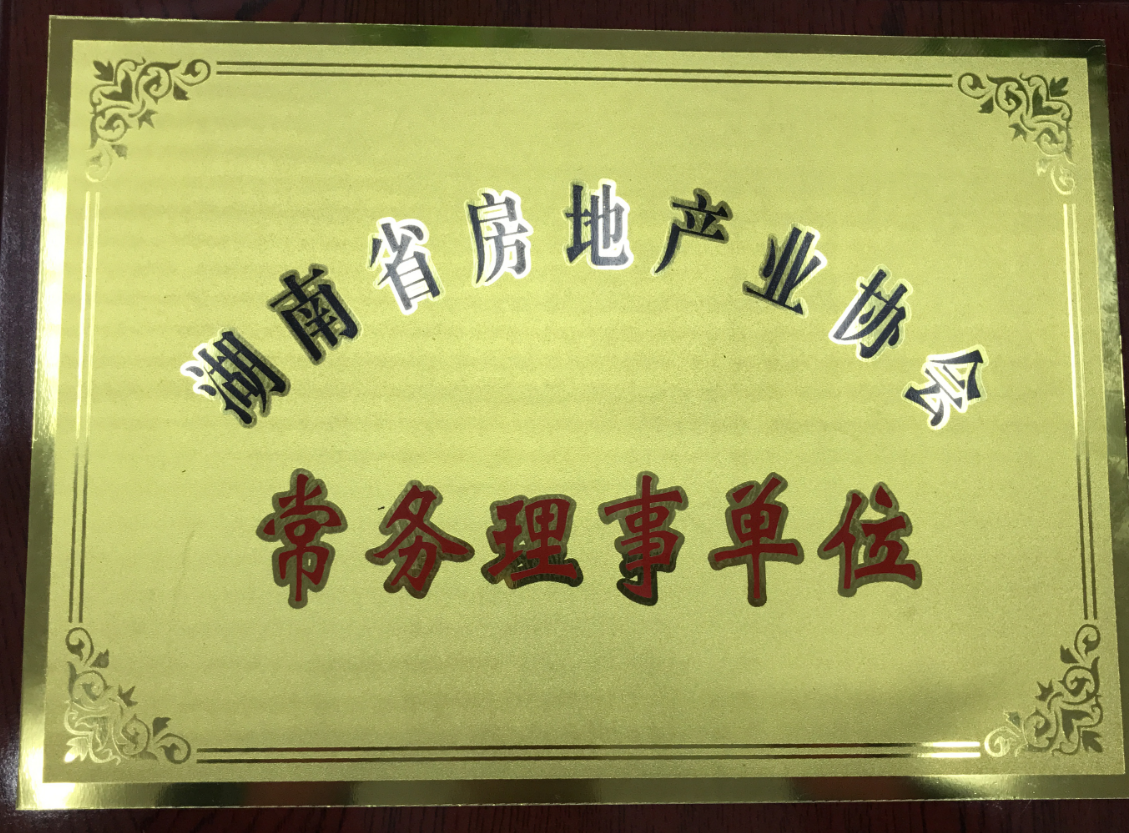 湖南省房地产业协会
常务理事单位